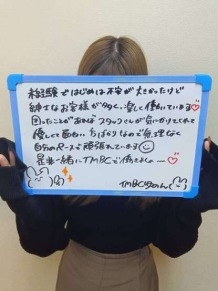 未経験ではじめは不安が大きかったけど
紳士なお客様が多く、楽しく働いています♡
困ったことがあればスタッフさんが気にかけてくれて
優しくて面白い ばかりなので無理なく
自分のペースで頑張れています☺
是非一緒にTMBCで働きましょー♡
TMBC